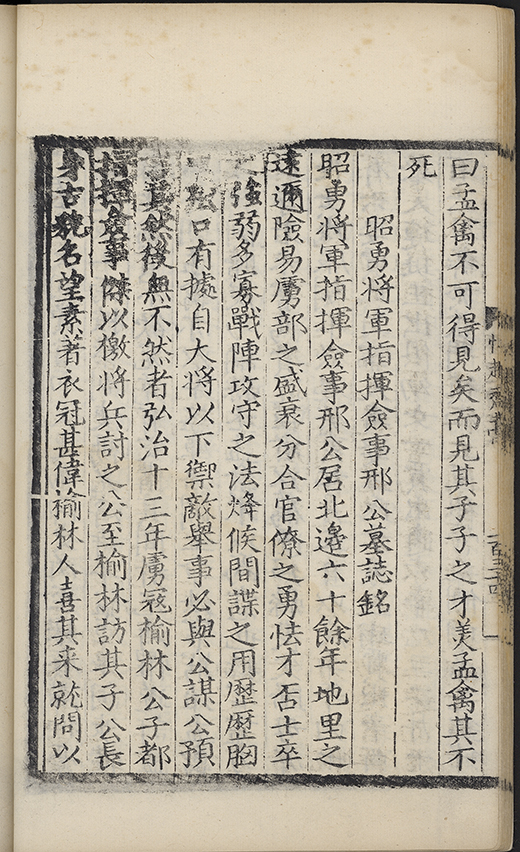 曰孟禽不可得見矣而見其子子之才美孟禽其不
死
昭勇將軍指揮僉事邢公墓誌銘
昭勇將軍指揮僉事邢公居北邊六十餘年地里之
遠邇險易虜部之盛衰分合官僚之勇怯才否士卒
強弱多寡戰陣攻守之法烽候間諜之用歷歷胸
口有據自大將以下御敵舉事必與公謀公預
然後無不然者弘治十三年虜寇榆林公子都
指揮僉事傑以檄將兵討之公至榆林訪其子公長
身古貌名望素著衣冠甚偉榆林人喜其来就問以